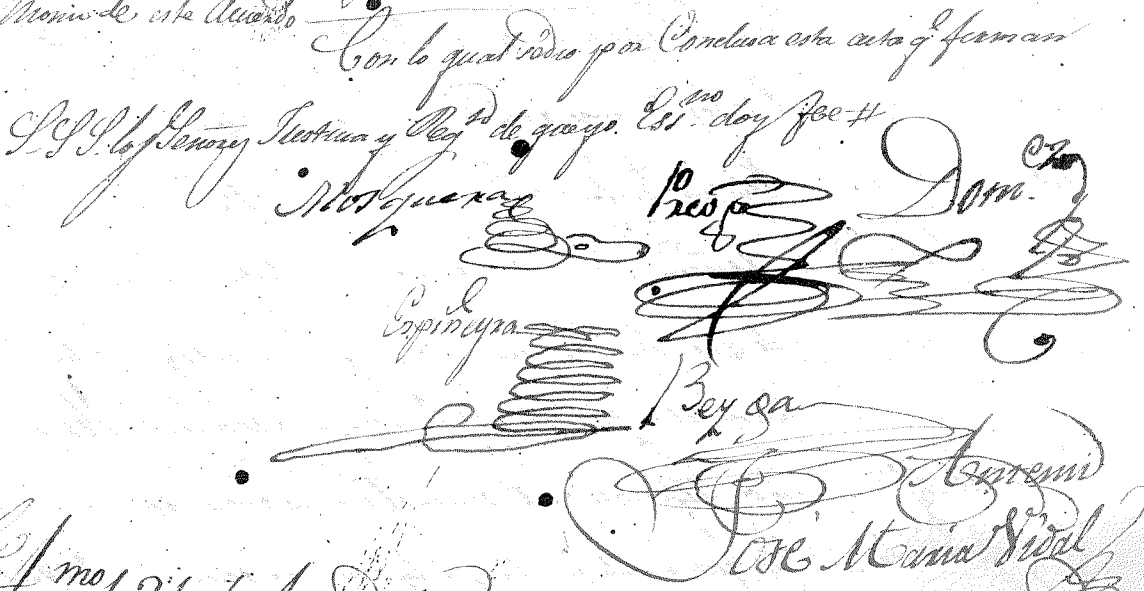 monio de este Acuerdo
Con lo qual sedio por Conclusa esta acta qᵉ firman
S.S.S. los Señores Justicia y Regᵗᵒ de qᵉ yo Essⁿᵒ doy fee #
Mosquera
Domᶻ
Espiñeyra
Beyga
Antemi
José Maria Vidal